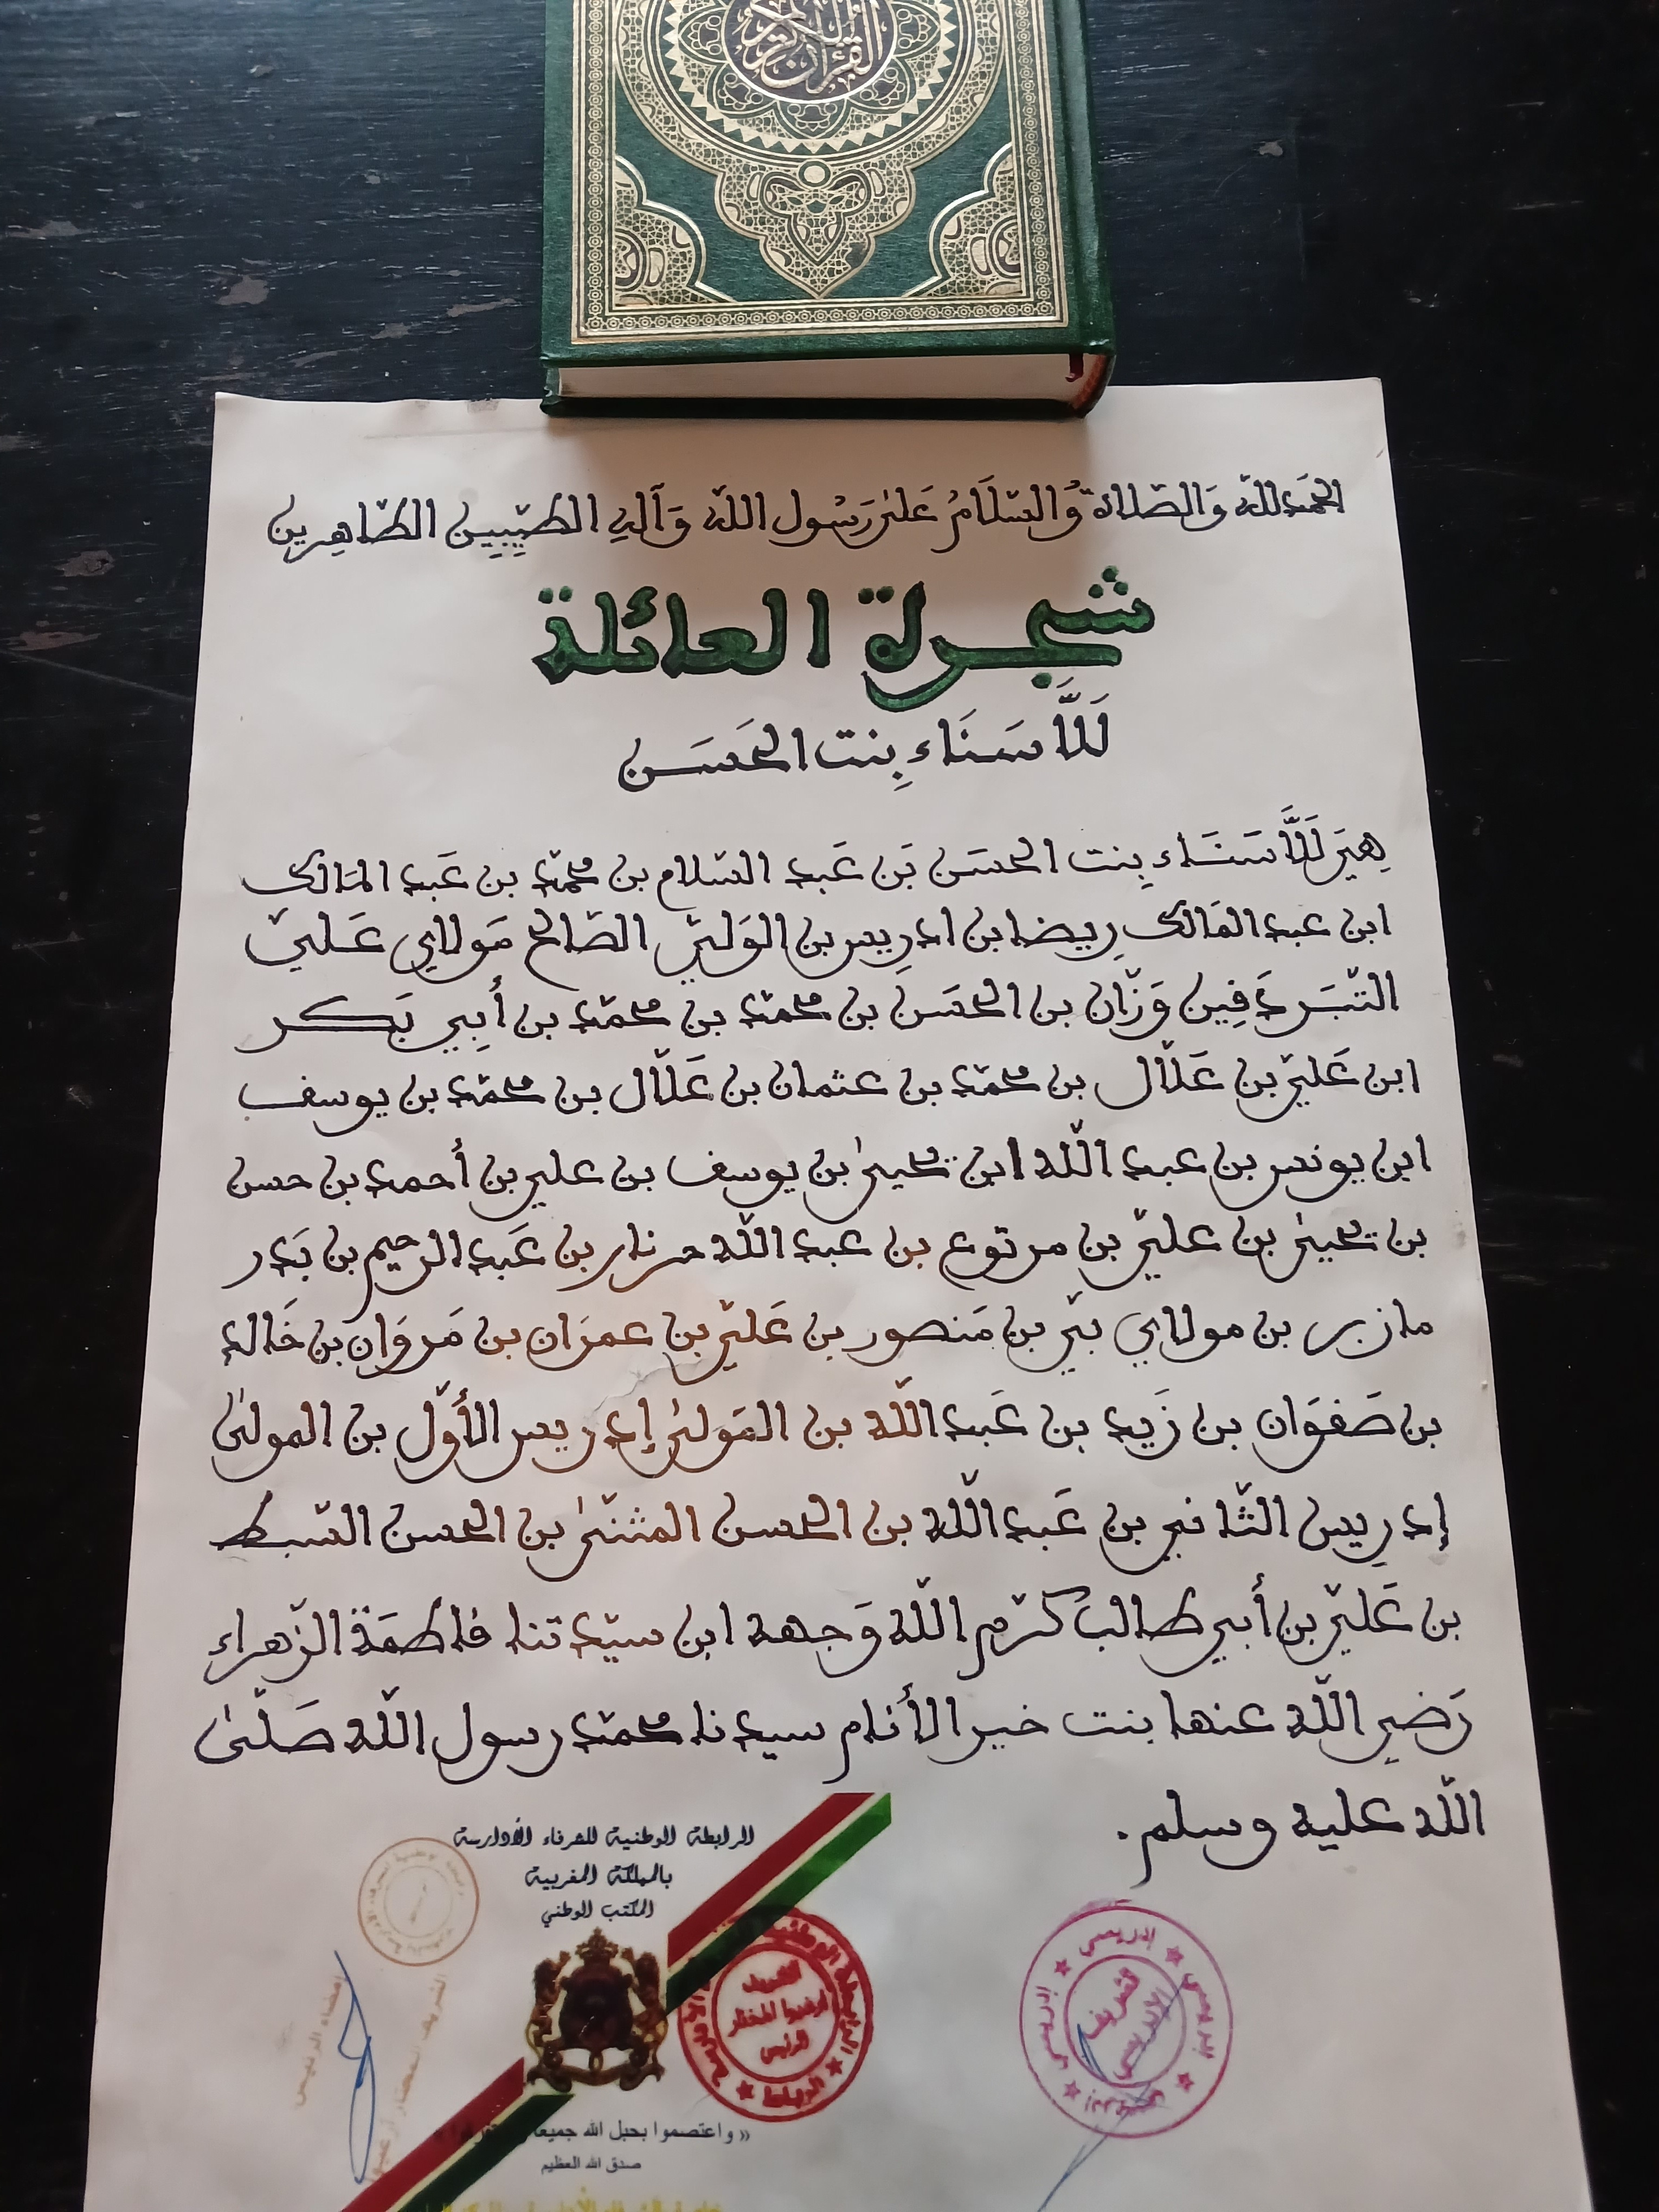 القرآن الكريم
الحمَدُ للّه وَالصّلاة وُالسّلَامُ عَلىٰ رَسُول اللّه وَآلهِ الطيِّبِين الطّاهِرين
شجرة العائلة
لَلاَّ سَنَاء بِنت الحَسَن
هِيَ لَلاَّ سَنَاء بِنت الحسَن بَن عَبد السّلام بن محمّد بن عَبد المَالك
ابن عبد المَالك رِيضا بن ادرِيس بن الوَليّ الصّالح مَولاي عَـليّ
التّبَر دَفِين وَزّان بن الحسَن بن محمّد بن محمّد بن أَبِي بَكر
ابن عَليّ بن عَلاّل بن محمّد بن عثمان بن عَلاّل بن محمّد بن يوسف
ابن يونس بن عبد اللّه ابن يحيىٰ بن يوسف بن علي بن أحمد بن حسن
بن يحيىٰ بن عليّ بن مرتوع بن عبد اللّه حرنار بن عَبد الرحيم بن بَدر
مازير بن مولاي بيّ بن مَنصور بن عَليّ بن عمرَان بن مَروَان بن خَالد
بن صَفوَان بن زَيد بن عَبد اللّه بن المَولىٰ إدريس الأوّل بن المولىٰ
إدرِيس الثّاني بن عَبد اللّه بن الحسن المثنّىٰ بن الحسن السّبط
بن عَليّ بن أبي طالب كرّم اللّه وَجهه ابن سيّدتنا فاطمَة الزّهراء
رَضي اللّه عنها بنت خير الأنام سيدنا محمّد رسول اللّه صَلّىٰ
اللّه عليه وسلم.
الرابطة الوطنية للشرفاء الأدارسة
بالمملكة المغربية
المكتب الوطني
إدريسي ★ إدريسي ★ إدريسي ★ إدريسي
الشريف
الإدريسي
الشريف
الرئيس
الرباط
إمضاء الرئيس
« واعتصموا بحبل الله جميعا
صدق الله العظيم